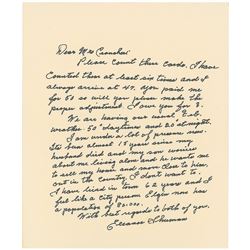 Dear Mrs Crenshaw:
Please count these cards. I have
counted them at least six times and I
always arrive at 47. You paid me
for 50 so will you please make the
proper adjustment. I owe you for 3.
We are having our usual Feb.
weather 50° daytimes and 20° at nights.
I am under a lot of pressure now.
Its been almost 15 years since my
husband died and my son worries
about me living alone and he wants me
to sell my house and move close to him,
out in the country. I don't want to.
I have lived in town 62 years and I
feel like a city person. Elgin now has
a population of 80,000.
With best regards to both of you.
Eleanor Sherman